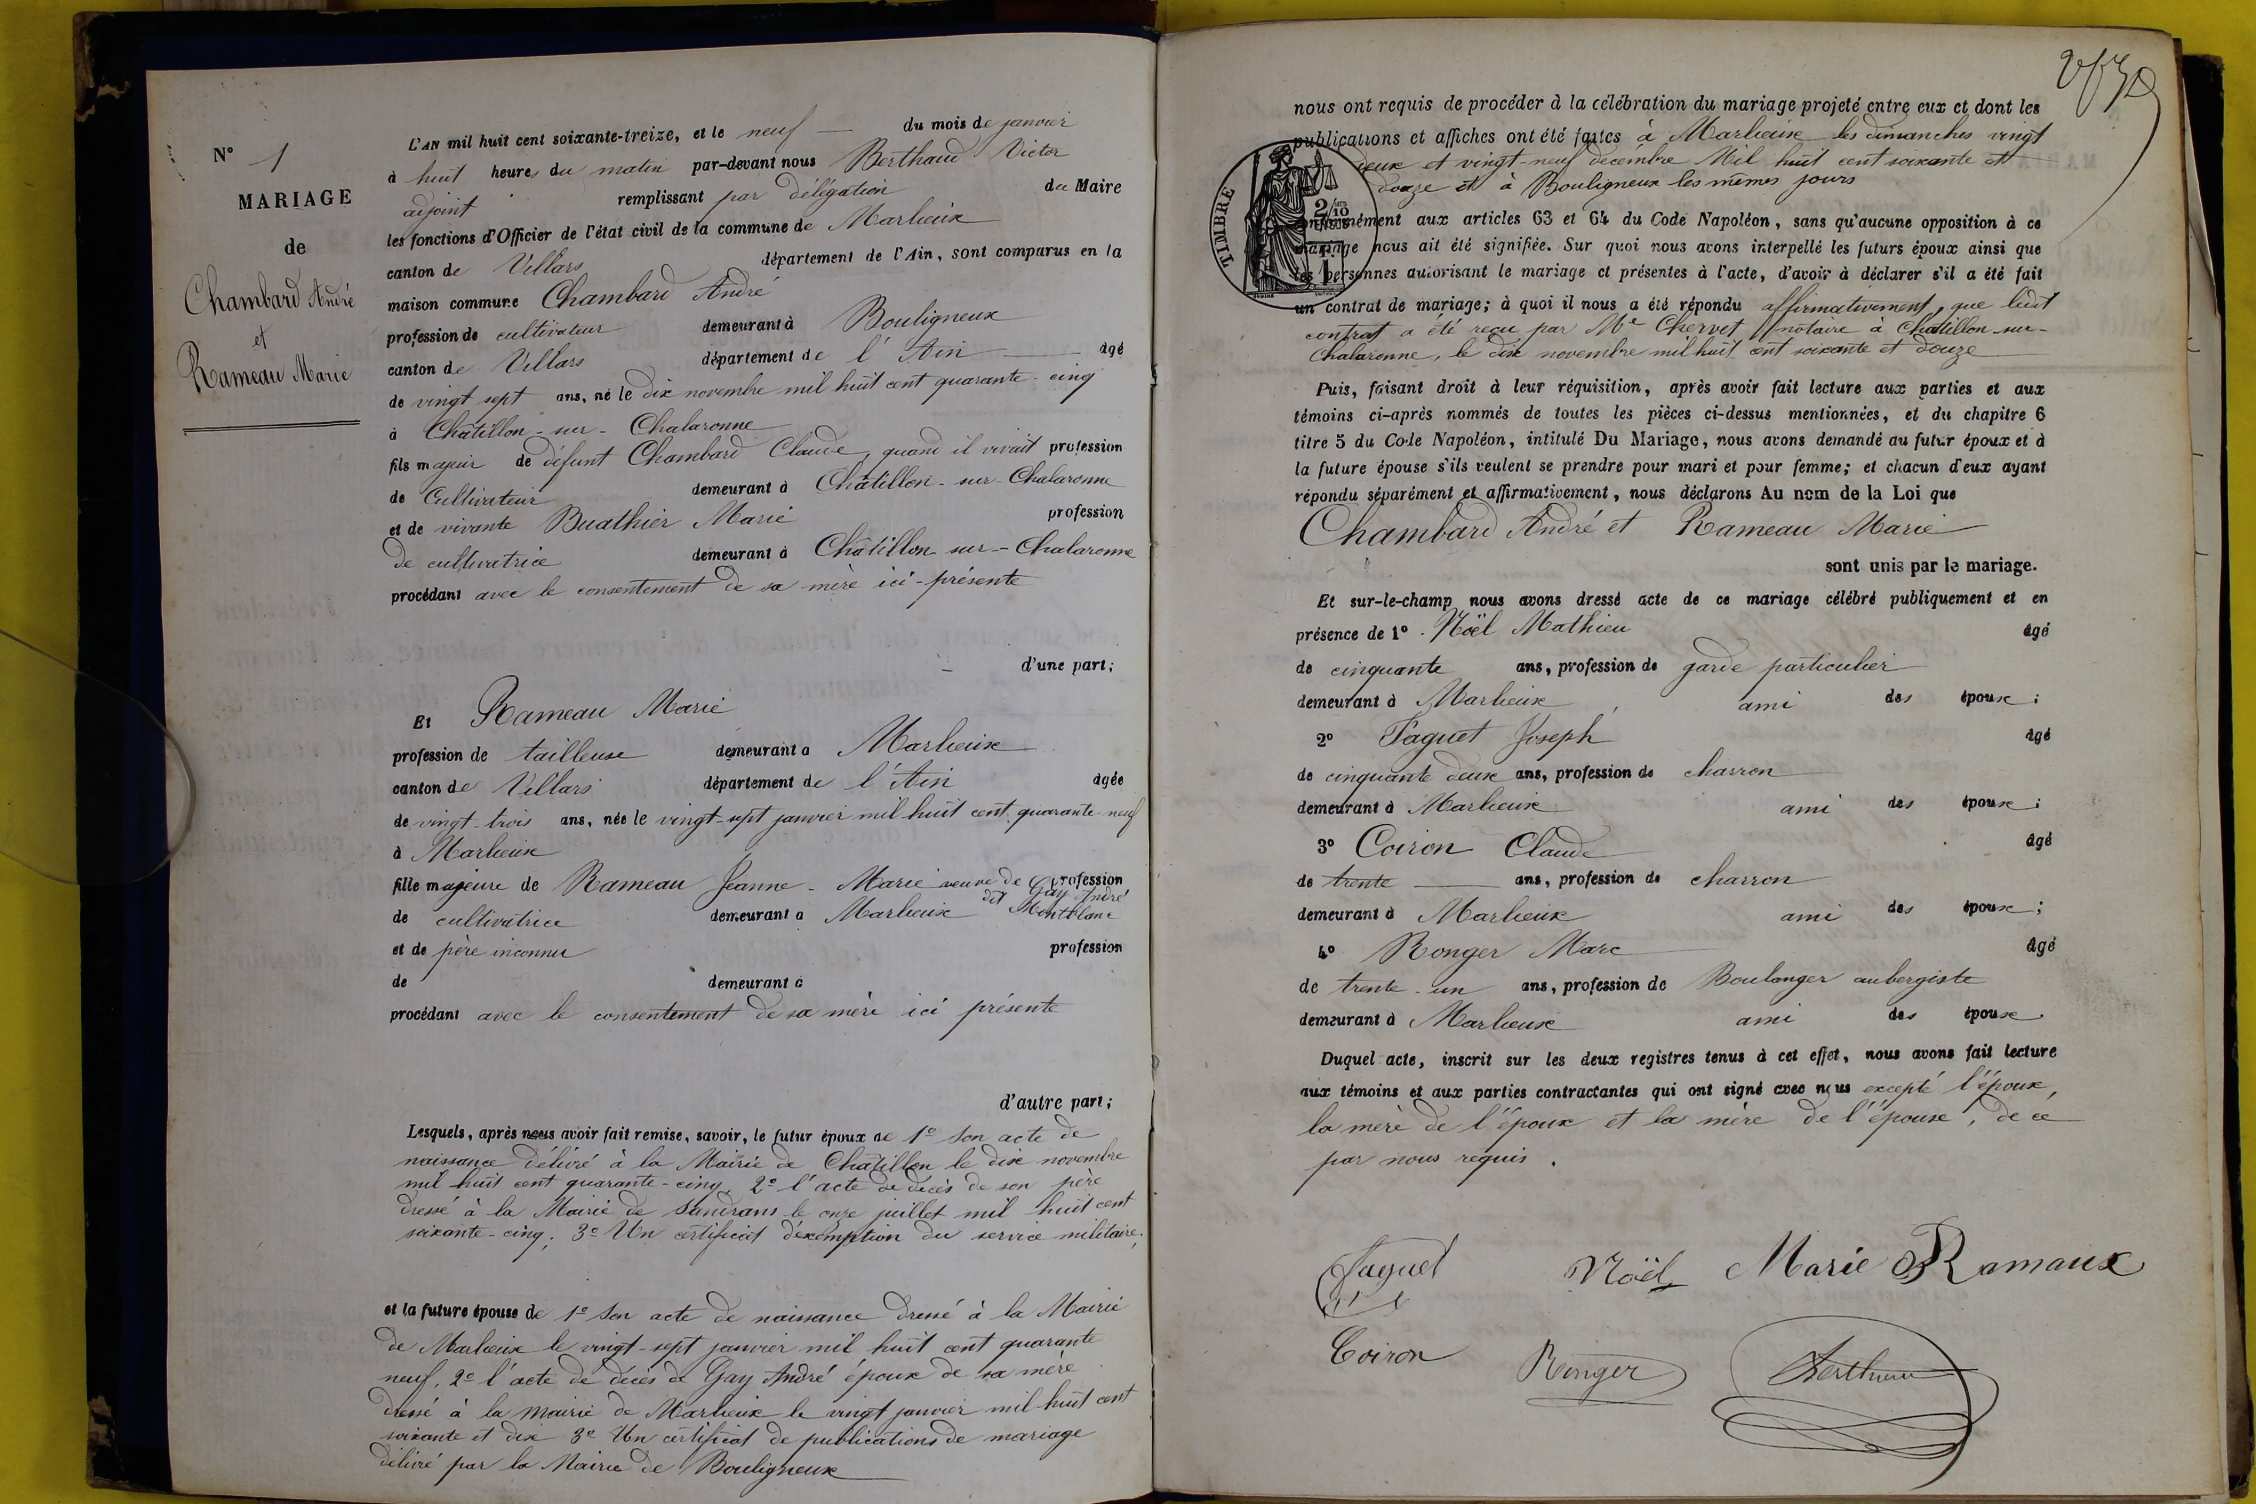 N° 1
MARIAGE
de
Chambard André
et
Rameau Marie
L'AN mil huit cent soixante-treize, et le neuf du mois de janvier
à huit heures du matin par-devant nous Berthaud Victor
adjoint remplissant par délégation du Maire
les fonctions d'Officier de l'état civil de la commune de Marlieux
canton de Villars département de l'Ain, sont comparus en la
maison commune Chambard André
profession de cultivateur demeurant à Bouligneux
canton de Villars département de l'Ain âgé
de vingt sept ans, né le dix novembre mil huit cent quarante-cinq
à Châtillon-sur-Chalaronne
fils majeur de défunt Chambard Claude, quand il vivait profession
de Cultivateur demeurant à Châtillon-sur-Chalaronne
et de vivante Buathier Marie profession
de cultivatrice demeurant à Châtillon-sur-Chalaronne
procédant avec le consentement de sa mère ici-présente
d'une part;
Et Rameau Marie
profession de tailleuse demeurant à Marlieux
canton de Villars département de l'Ain âgée
de vingt-trois ans, née le vingt-sept janvier mil huit cent quarante-neuf
à Marlieux
fille majeure de Rameau Jeanne-Marie veuve de Gay André profession
de cultivatrice demeurant à Marlieux dit Montblanc
et de père inconnu profession
de demeurant à
procédant avec le consentement de sa mère ici présente
d'autre part;
Lesquels, après nous avoir fait remise, savoir, le futur époux de 1° Son acte de
naissance délivré à la Mairie de Châtillon le dix novembre
mil huit cent quarante-cinq, 2° l'acte de décès de son père
dressé à la Mairie de Sandrans le onze juillet mil huit cent
soixante-cinq; 3° Un certificat d'exemption du service militaire;
et la future épouse de 1° Son acte de naissance dressé à la Mairie
de Marlieux le vingt-sept janvier mil huit cent quarante
neuf, 2° l'acte de décès de Gay André époux de sa mère
dressé à la Mairie de Marlieux le vingt janvier mil huit cent
soixante et dix 3° Un certificat de publications de mariage
délivré par la Mairie de Bouligneux
nous ont requis de procéder à la célébration du mariage projeté entre eux et dont les
publications et affiches ont été faites à Marlieux les dimanches vingt
deux et vingt-neuf décembre Mil huit cent soixante et
douze et à Bouligneux les mêmes jours
TIMBRE
2/10
conformément aux articles 63 et 64 du Code Napoléon, sans qu'aucune opposition à ce
mariage nous ait été signifiée. Sur quoi nous avons interpellé les futurs époux ainsi que
les personnes autorisant le mariage et présentes à l'acte, d'avoir à déclarer s'il a été fait
un contrat de mariage; à quoi il nous a été répondu affirmativement, que ledit
contrat a été reçu par Me Chervet notaire à Châtillon-sur-
Chalaronne, le dix novembre mil huit cent soixante et douze
Puis, faisant droit à leur réquisition, après avoir fait lecture aux parties et aux
témoins ci-après nommés de toutes les pièces ci-dessus mentionnées, et du chapitre 6
titre 5 du Code Napoléon, intitulé Du Mariage, nous avons demandé au futur époux et à
la future épouse s'ils veulent se prendre pour mari et pour femme; et chacun d'eux ayant
répondu séparément et affirmativement, nous déclarons Au nom de la Loi que
Chambard André et Rameau Marie
sont unis par le mariage.
Et sur-le-champ nous avons dressé acte de ce mariage célébré publiquement et en
présence de 1° Noël Mathieu âgé
de cinquante ans, profession de garde particulier
demeurant à Marlieux ami des époux;
2° Faguet Joseph âgé
de cinquante deux ans, profession de charron
demeurant à Marlieux ami des époux;
3° Coiron Claude âgé
de trente ans, profession de charron
demeurant à Marlieux ami des époux;
4° Ronger Marc âgé
de trente-un ans, profession de Boulanger aubergiste
demeurant à Marlieux ami des époux
Duquel acte, inscrit sur les deux registres tenus à cet effet, nous avons fait lecture
aux témoins et aux parties contractantes qui ont signé avec nous excepté l'époux,
la mère de l'époux et la mère de l'épouse, de ce
par nous requis.
Faguet Noël Marie Ramaux
Coiron Ronger